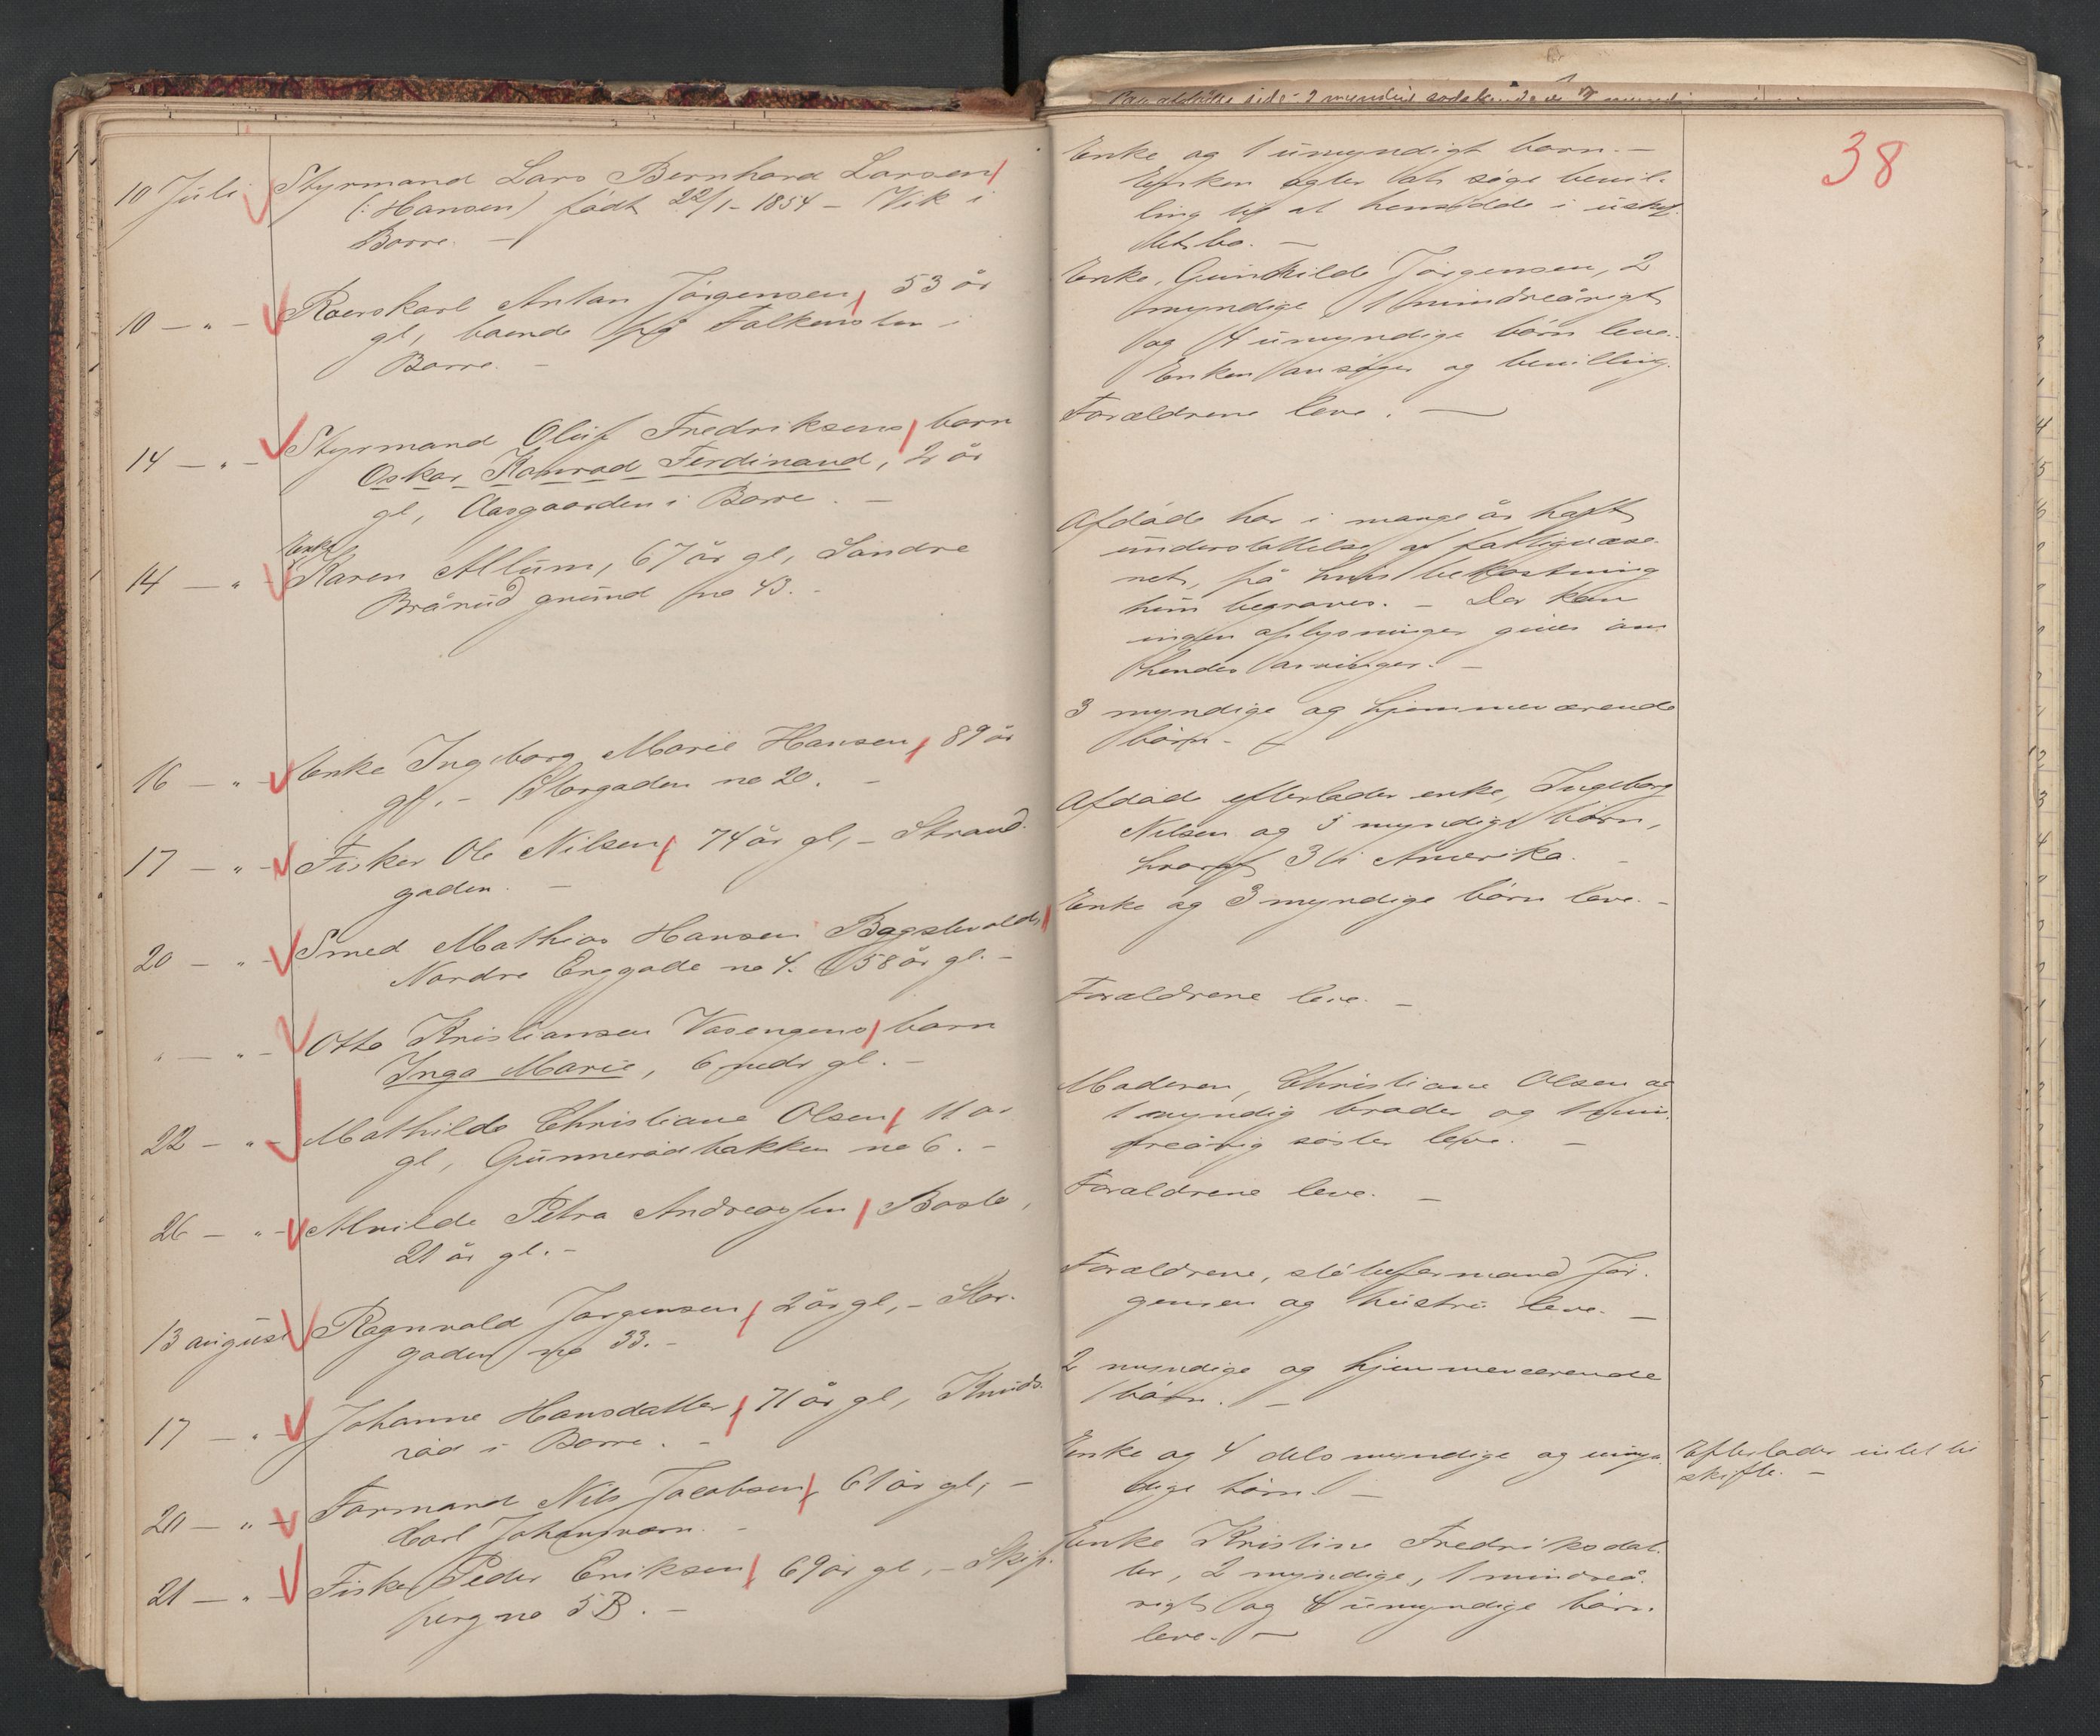 10 Juli Styrmand Lars Bernhard Larsen
(: Hansen) født 22/1 - 1854 - Vik i
Borre. -
10 - " - Roerskarl Anton Jörgensen, 53 år
gl, boende på Falkensten i
Borre. -
14 - " - Styrmand Oluf Fredriksens barn
Oskar Konrad Ferdinand, 2 år
gl, Aasgaarden i Borre. -
Enke
14 - " - Karen Allum, 67 år gl, Söndre
Brårud grund no 43. -
16 - " - Enke Ingeborg Marie Hansen, 89 år
gl. - Storgaden no 20. -
17 - " - Fisker Ole Nilsen, 74 år gl, - Strand-
gaden. -
20 - " - Smed Mathias Hansen
Nordre Enggade no 4. 58 år gl. -
" - " - Otto Kristiansen Vasengens barn
Inga Marie, 6 mdr gl. -
22 - " - Mathilde Christiane Olsen, 11 år
gl, no 6. -
26 - " - Alvilde Petra Andreassen, Basle,
21 år gl. -
13 august Ragnvald Jørgensen, 2 år gl, - Stor-
gaden no 33. -
17 - " - Johanne Hansdatter, 71 år gl, Knuds-
rød i Borre. -
20 - " - Formand Nils Jacobsen, 61 år gl, -
Carl Johansværn. -
21 - " - Fisker Peder Eriksen, 69 år gl, - Skip-
perg no 5 B. -
38
Enke og 1 umyndigt barn. -
Enken agter at søge bevil-
ling til at hensidde i uskif-
tet bo. -
Enke, Gunhilde Jörgensen, 2
myndige 1 mindreårigt
og 4 umyndige børn leve.
Enken ansøger og bevilling.
Forældrene leve. -
Afdøde har i mange år haft
understøttelse af fattigvæse-
net, på hvis bekostning
hun begraves. - Der kan
ingen oplysninger gives om
hendes arvinger. -
3 myndige og hjemmeværende
børn. -
Afdøde efterlader enke, Ingeborg
Nilsen og 5 myndige børn,
hvoraf 3 i Amerika. -
Enke og 3 myndige børn leve. -
Forældrene leve. -
Moderen, Christiane Olsen og
1 myndig broder og 1 min-
dreårig søster leve. -
Forældrene leve. -
Forældrene, Jör-
gensen og hustru leve. -
2 myndige og hjemmeværende
børn. -
Enke og 4 dels myndige og umyn-
dige børn. -
Efterlader intet til
skifte. -
Enke Kristine Fredriksdat-
ter, 2 myndige, 1 mindreå-
rigt og 4 umyndige børn
leve. -